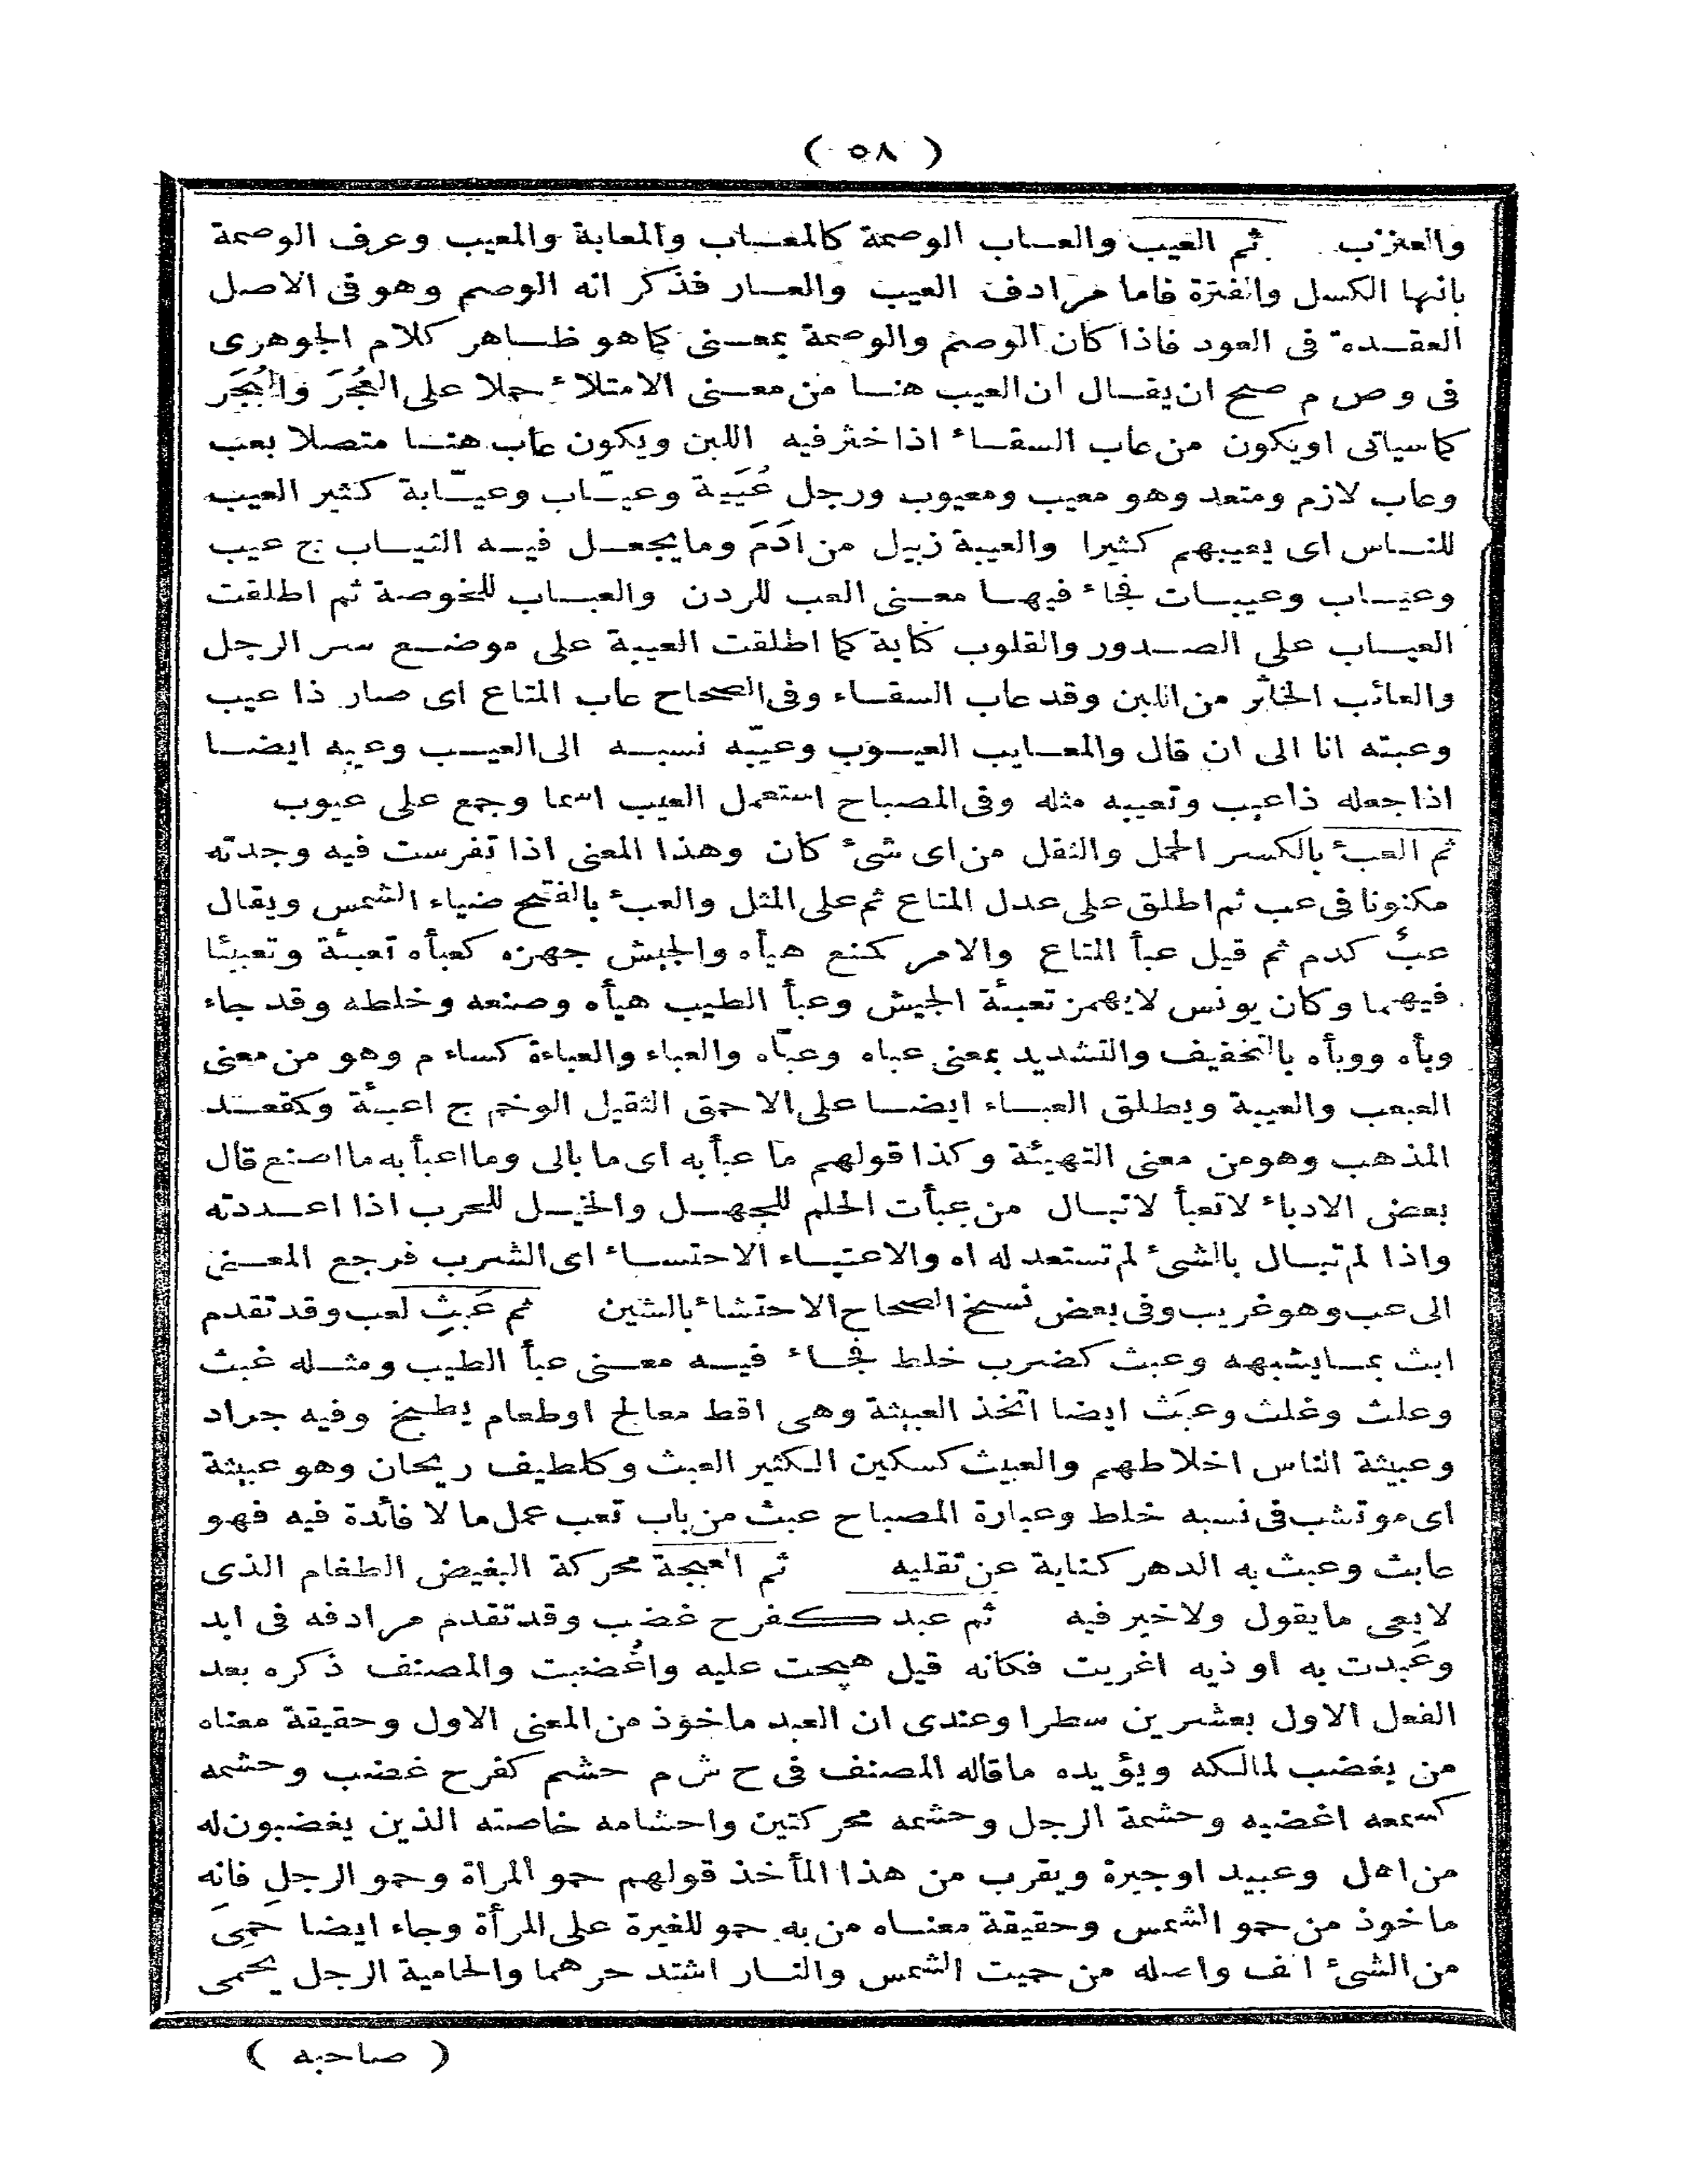 ( ٥٨ )
والعنزب ثم العيب والعاب الوصمة كالمعاب والمعابة والمعيب وعرف الوصمة
بانها الكسل والفترة فاما مرادف العيب والعار فذكر انه الوصم وهو فى الاصل
العقدة فى العود فاذا كان الوصم والوصمة بمعنى كما هو ظاهر كلام الجوهرى
فى و ص م صح ان يقال ان العيب هنا من معنى الامتلاء حملا على العُجَرَ والبُجَر
كما سياتى او يكون من عاب السقاء اذا خثر فيه اللبن ويكون عاب هنا متصلا بعب
وعاب لازم ومتعد وهو معيب ومعيوب ورجل عُيَبة وعيّاب وعيّابة كثير العيب
للناس اى يعيبهم كثيرا والعيبة زبيل من اَدَمَ وما يجعل فيه الثياب ج عيب
وعياب وعيبات فجاء فيها معنى العب للردن والعباب للخوصة ثم اطلقت
العياب على الصدور والقلوب كناية كما اطلقت العيبة على موضع سر الرجل
والعائب الخاثر من اللبن وقد عاب السقاء وفى الصحاح عاب المتاع اى صار ذا عيب
وعبته انا الى ان قال والمعايب العيوب وعيّبه نسبه الى العيب وعيبه ايضا
اذا جعله ذا عيب وتعيبه مثله وفى المصباح استعمل العيب اسما وجمع على عيوب
ثم العبء بالكسر الحمل والثقل من اى شئ كان وهذا المعنى اذا تفرست فيه وجدته
مكنونا فى عب ثم اطلق على عدل المتاع ثم على المثل والعبء بالفتح ضياء الشمس ويقال
عبُ كدم ثم قيل عبأ المتاع والامر كمنع هيأه والجيش جهزه كعبأه تعبئة وتعبيئا
فيهما وكان يونس لا يهمز تعبئة الجيش وعبأ الطيب هيأه وصنعه وخلطه وقد جاء
وبأه ووبأه بالتخفيف والتشديد بمعنى عباه وعبّاه والعباء والعباءة كساء م وهو من معنى
العبعب والعيبة ويطلق العباء ايضا على الاحمق الثقيل الوخم ج اعبئة وكمقعد
المذهب وهو من معنى التهيئة وكذا قولهم ما عبأ به اى ما بالى وما اعبأ به ما اصنع قال
بعض الادباء لا تعبأ لا تبال من عبأت الحلم للجهل والخيل للحرب اذا اعددته
واذا لم تبال بالشئ لم تستعد له اه والاعتباء الاحتساء اى الشرب فرجع المعنى
الى عب وهو غريب وفى بعض نسخ الصحاح الاحتشاء بالشين ثم عَبِث لعب وقد تقدم
ابث بما يشبهه وعبث كضرب خلط فجاء فيه معنى عبأ الطيب ومثله غبث
وعلث وغلث وعبَث ايضا اتخذ العبيثة وهى اقط معالج او طعام يطبخ وفيه جراد
وعبيثة الناس اخلاطهم والعبيث كسكين الكثير العبث وكلطيف ريحان وهو عبيثة
اى موتشب فى نسبه خلط وعبارة المصباح عبث من باب تعب عمل ما لا فائدة فيه فهو
عابث وعبث به الدهر كناية عن تقليبه ثم العبجة محركة البغيض الطغام الذى
لا يعى ما يقول ولا خير فيه ثم عبد كفرح غضب وقد تقدم مرادفه فى ابد
وعُبدت به او ذيه اغريت فكانه قيل هيجت عليه واغُضبت والمصنف ذكره بعد
الفعل الاول بعشرين سطرا وعندى ان العبد ماخوذ من المعنى الاول وحقيقة معناه
من يغضب لمالكه ويؤيده ماقاله المصنف فى ح ش م حشم كفرح غضب وحشمه
كسمعه اغضبه وحشمة الرجل وحشمه محركتين واحشامه خاصته الذين يغضبون له
من اهل وعبيد اوجيرة ويقرب من هذا المأخذ قولهم حمو المراة وحمو الرجل فانه
ماخوذ من حمو الشمس وحقيقة معناه من به حمو للغيرة على المرأة وجاء ايضا حَمِىَ
من الشئ انف واصله من حميت الشمس والنار اشتد حرهما والحامية الرجل يحمى
( صاحبه )